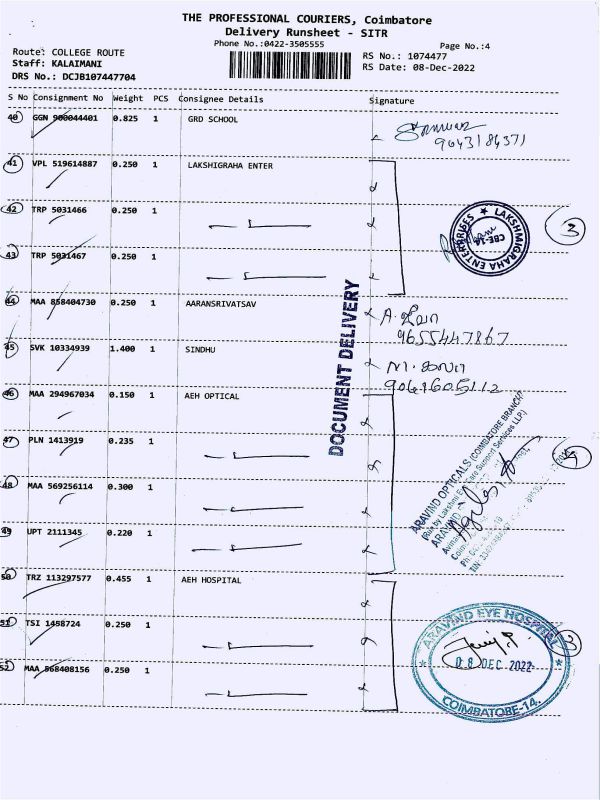 THE PROFESSIONAL COURIERS, Coimbatore
Delivery Runsheet - SITR
Phone No.:0422-3505555
Page No.:4
Route: COLLEGE ROUTE
Staff: KALAIMANI
DRS No.: DCJB107447704
RS No.: 1074477
RS Date: 08-Dec-2022
S No Consignment No Weight PCS Consignee Details Signature
40 GGN 900044401 0.825 1 GRD SCHOOL
9043184371
41 VPL 519614887 0.250 1 LAKSHIGRAHA ENTER
42 TRP 5031466 0.250 1
LAKSHMIGRAHA ENTERPRISES
CBE-14
3
43 TRP 5031467 0.250 1
44 MAA 858404730 0.250 1 AARANSRIVATSAV
9655447867
45 SVK 10334939 1.400 1 SINDHU
DOCUMENT DELIVERY
46 MAA 294967034 0.150 1 AEH OPTICAL
47 PLN 1413919 0.235 1
ARAVIND OPTICALS (COIMBATORE BRANCH)
48 MAA 569256114 0.300 1
49 UPT 2111345 0.220 1
50 TRZ 113297577 0.455 1 AEH HOSPITAL
51 TSI 1458724 0.250 1
52 MAA 568408156 0.250 1
ARAVIND EYE HOSPITAL
08 DEC 2022
COIMBATORE-14.